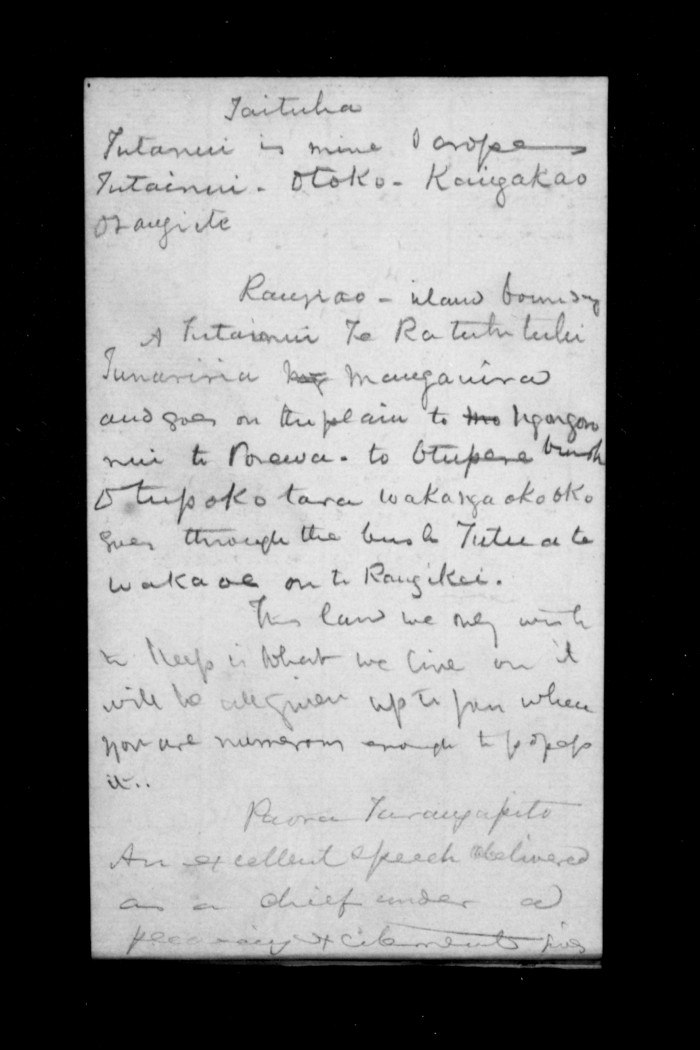 Taituha
Tutanui is mine I oropea
Tutainui - Otoko - Kaugakao
Orangi te
Rangiao - inland boundary
A Tutainui Te Ra tutu tuhi
Tunariria Mangamira
and goes on the plain to Ngongoro
nui to Porewa - to Otupere bush
Otupoko tara wakanga okooko
goes through the bush Tutu a te
waka on to Rangikei.
This land we only wish
to keep is what we live on it
will be all given up to you when
you are numerous enough to possess
it..
Paora Turangapito
An excellent speech delivered
as a chief under a
excitement